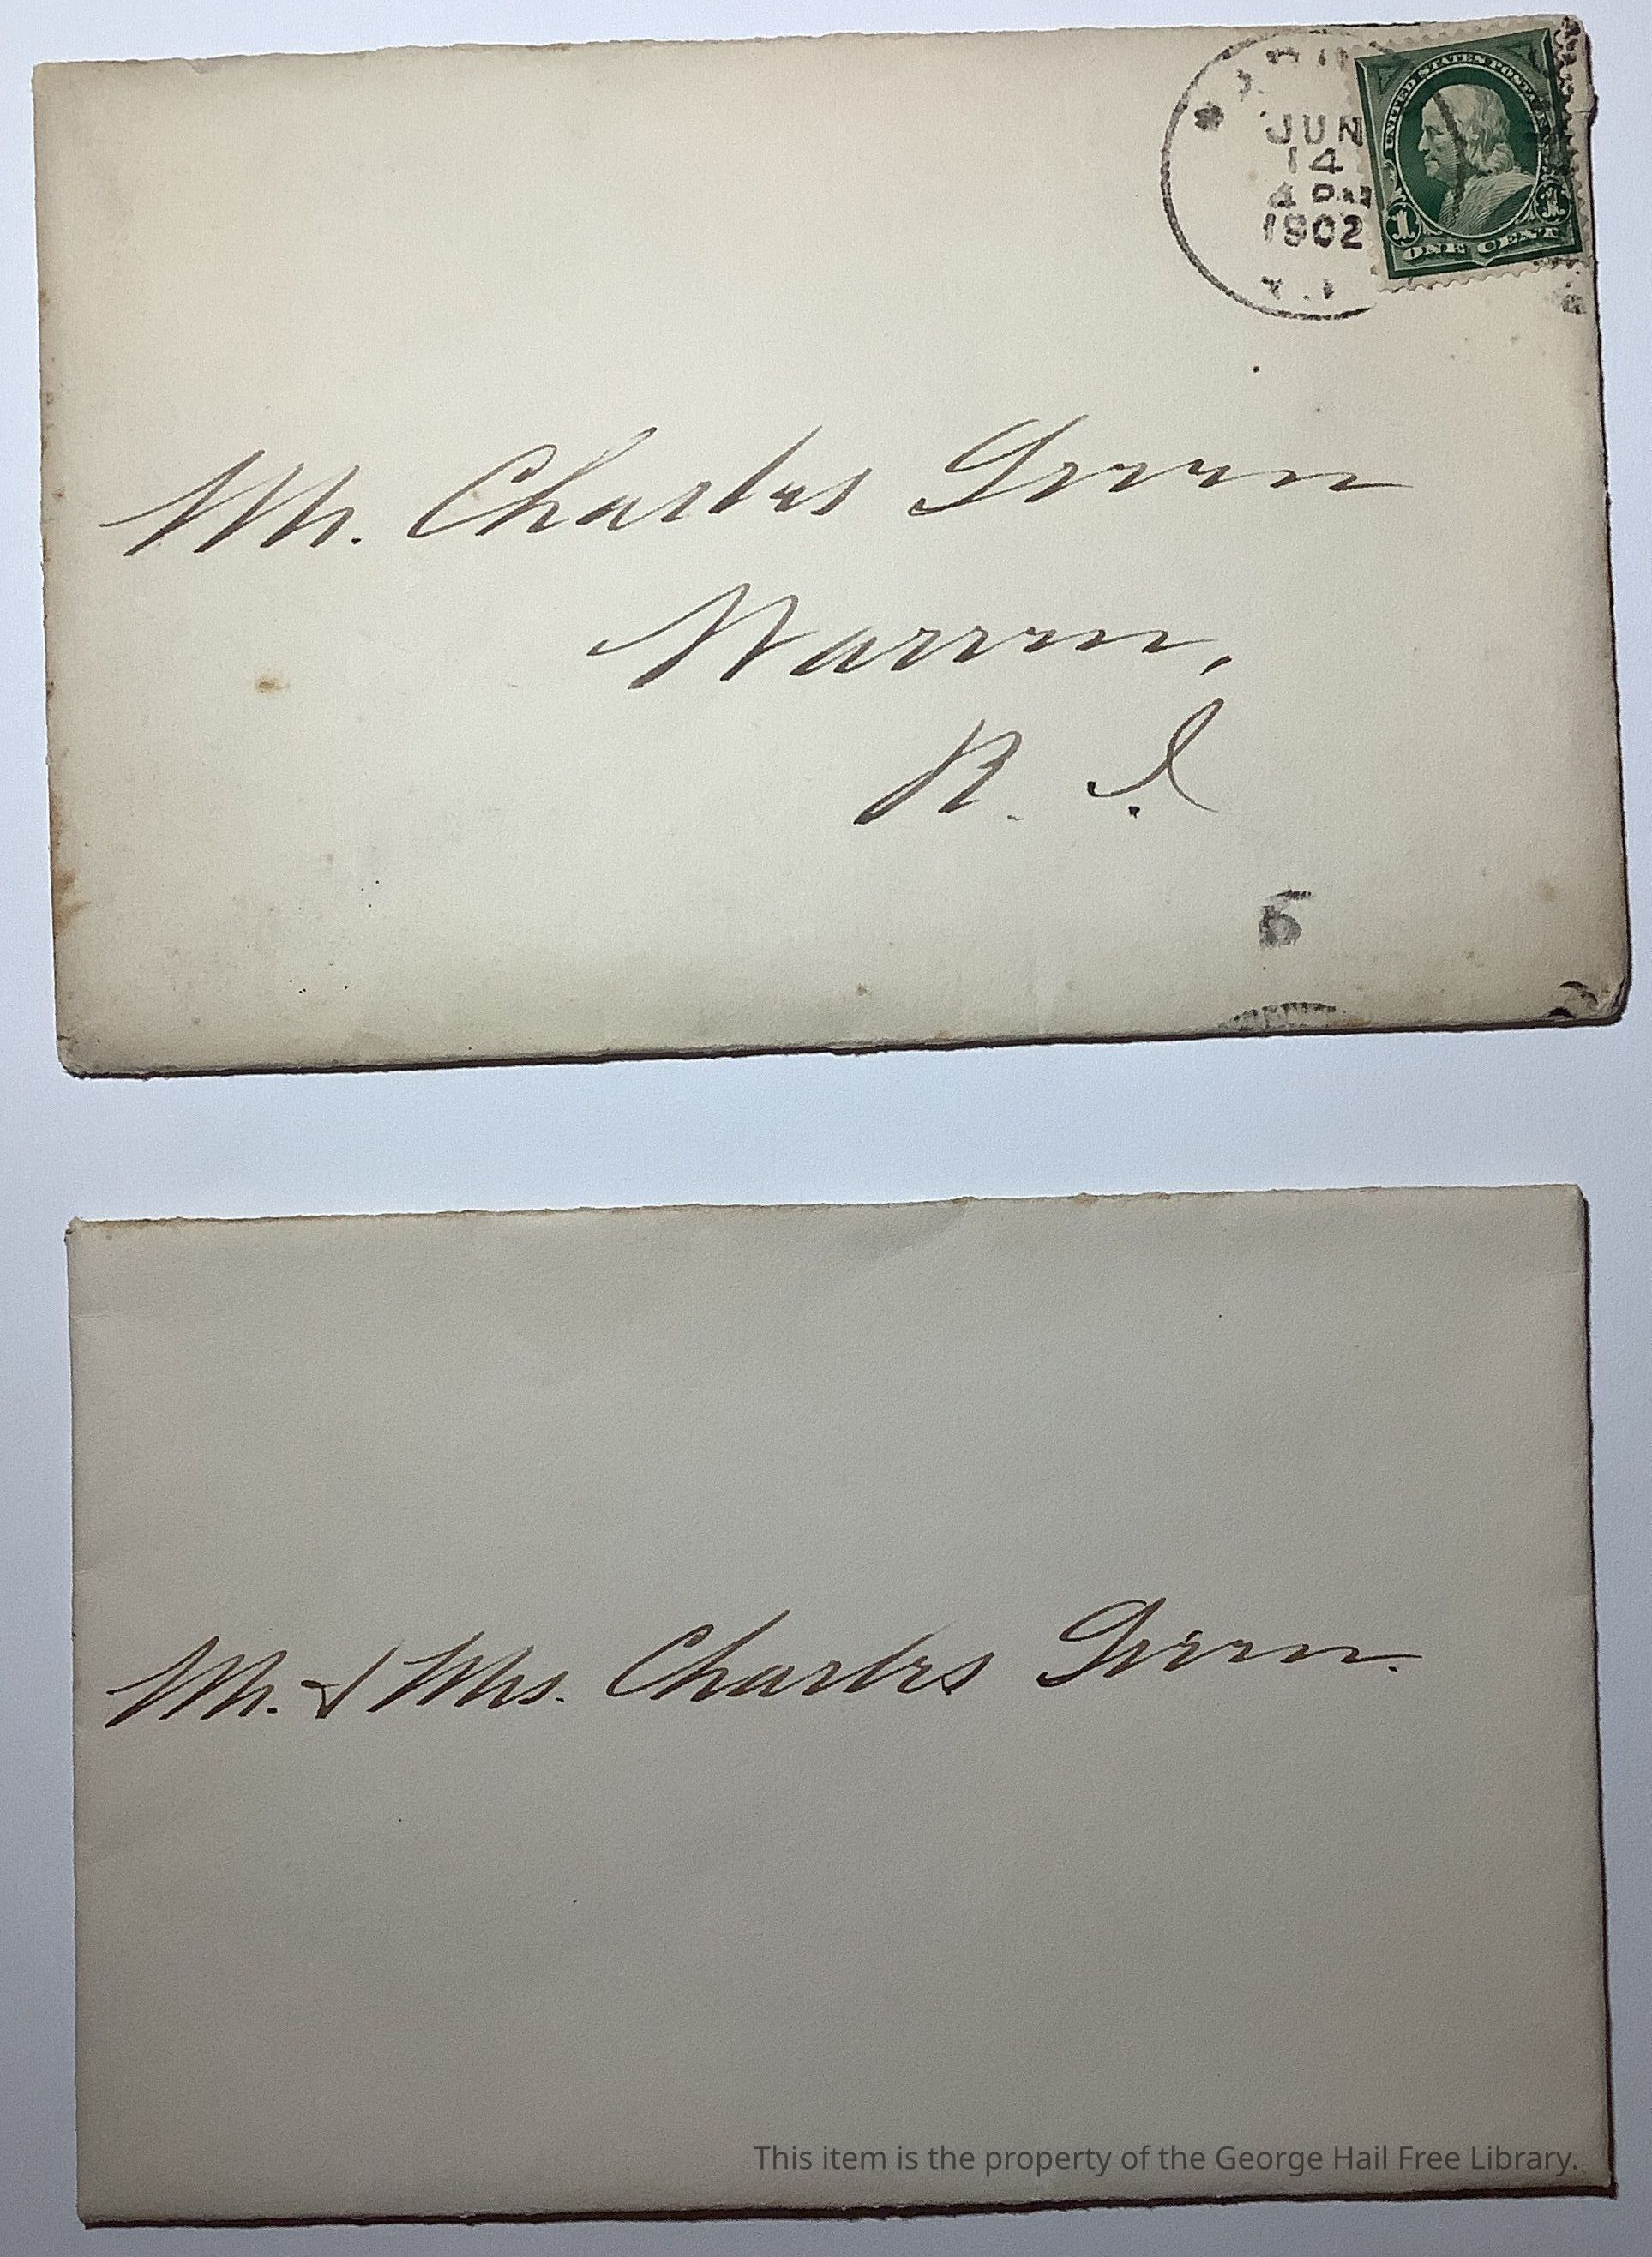 JUN
14
4 PM
1902
UNITED STATES POSTAGE
1 1
ONE CENT
Mr. Charles Green
Warren,
R. I.
5
Mr. & Mrs. Charles Green.
This item is the property of the George Hail Free Library.